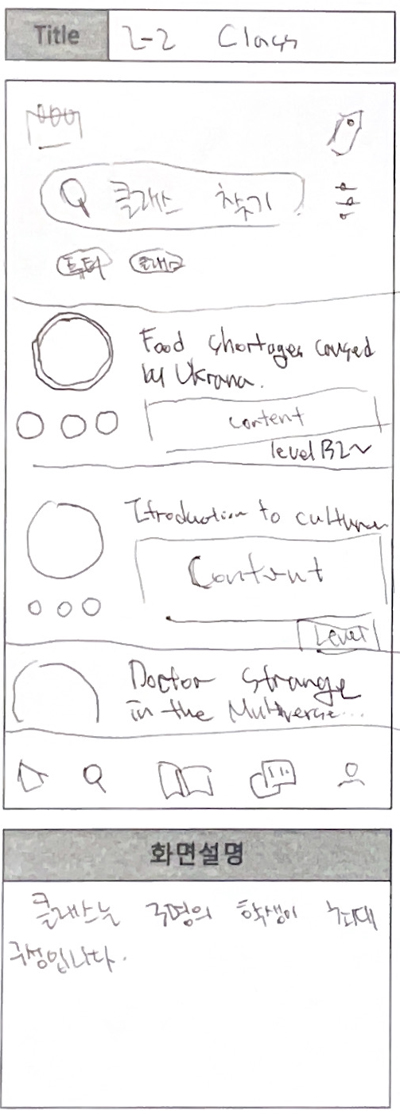 Title
2-2 Class
클래스 찾기
튜터 클래스
Food shortages caused
by Ukrana.
content
level B2~
Itroduction to culture
Content
Level
Doctor Strange
in the Multiverse...
화면설명
클래스는 명의 학생이 최대
구성입니다.